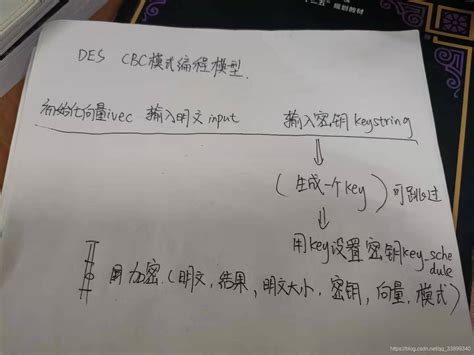 规划教材
DES CBC模式编程模型.
初始化向量ivec 输入明文input 输入密钥keystring
(生成一个key) 可跳过
用key设置密钥key_sche
dule
用加密(明文,结果,明文大小,密钥,向量,模式)
https://blog.csdn.net/qq_33899340